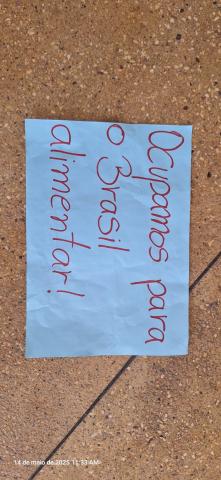 Ocupamos para
o Brasil
alimentar!
14 de maio de 2025 11:33 AM